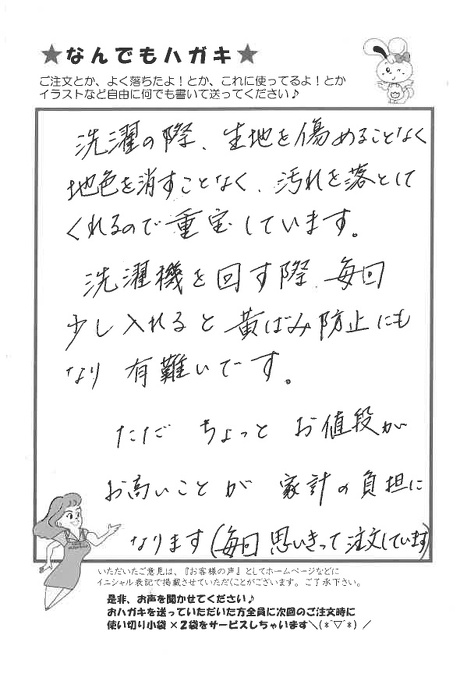 ★なんでもハガキ★
ご注文とか、よく落ちたよ！とか、これに使ってるよ！とか
イラストなど自由に何でも書いて送ってください♪
洗濯の際、生地を傷めることなく
地色を消すことなく、汚れを落として
くれるので重宝しています。
洗濯機を回す際、毎回
少し入れると黄ばみ防止にも
なり有難いです。
ただ ちょっと お値段が
お高いことが 家計の負担に
なります(毎回思いきって注文しています)
いただいたご意見は、『お客様の声』としてホームページなどに
イニシャル表記で掲載させていただくことがございます。ご了承下さい。
是非、お声を聞かせてください♪
おハガキを送っていただいた方全員に次回のご注文時に
使い切り小袋×2袋をサービスしちゃいます＼(*´▽`*)／